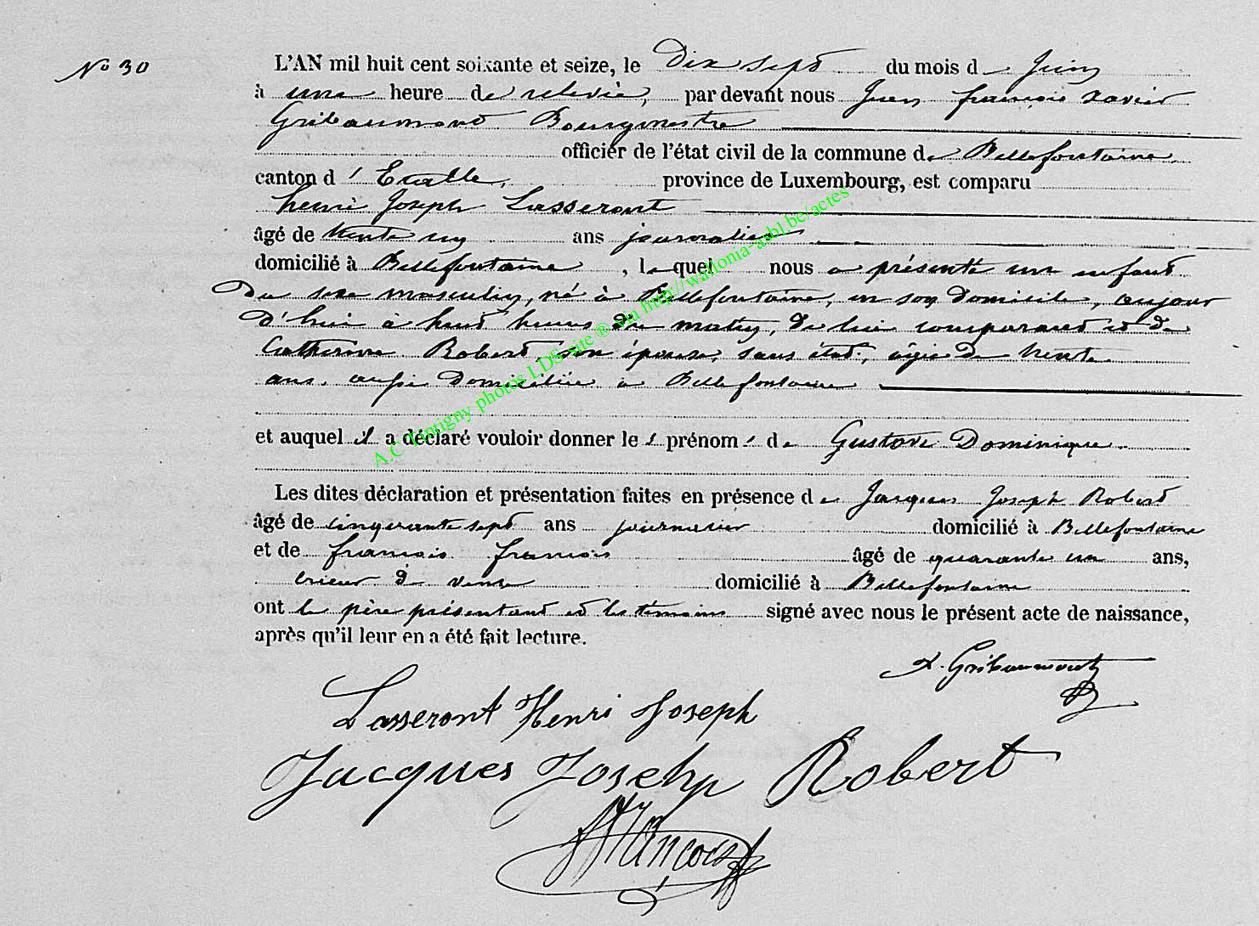 No 30
L'AN mil huit cent soixante et seize, le Dix sept du mois d e Juin
à une heure de relevée, par devant nous Jean françois Xavier
Gribaumont Bourgmestre
officier de l'état civil de la commune de Bellefontaine
canton d'Etalle, province de Luxembourg, est comparu
henri Joseph Lasseront
âgé de trente un ans journalier
domicilié à Bellefontaine, lequel nous a présenté un enfant
du sexe masculin, né à Bellefontaine, en son domicile, aujour
d'hui à huit heures du matin, de lui comparant et de
Catherine Robert, son épouse, sans état, âgée de trente
ans, aussi domiciliée à Bellefontaine
et auquel il a déclaré vouloir donner les prénoms de Gustave Dominique
Les dites déclaration et présentation faites en présence de Jacques Joseph Robert
âgé de cinquante sept ans journalier domicilié à Bellefontaine
et de françois françois âgé de quarante un ans,
crieur de vente domicilié à Bellefontaine
ont le père présentant et les témoins signé avec nous le présent acte de naissance,
après qu'il leur en a été fait lecture.
X. Gribaumont
Lasseront Henri Joseph
Jacques Josehp Robert
François
A.C Tintigny photos LDS site ® via http://wallonia-asbl.be/actes